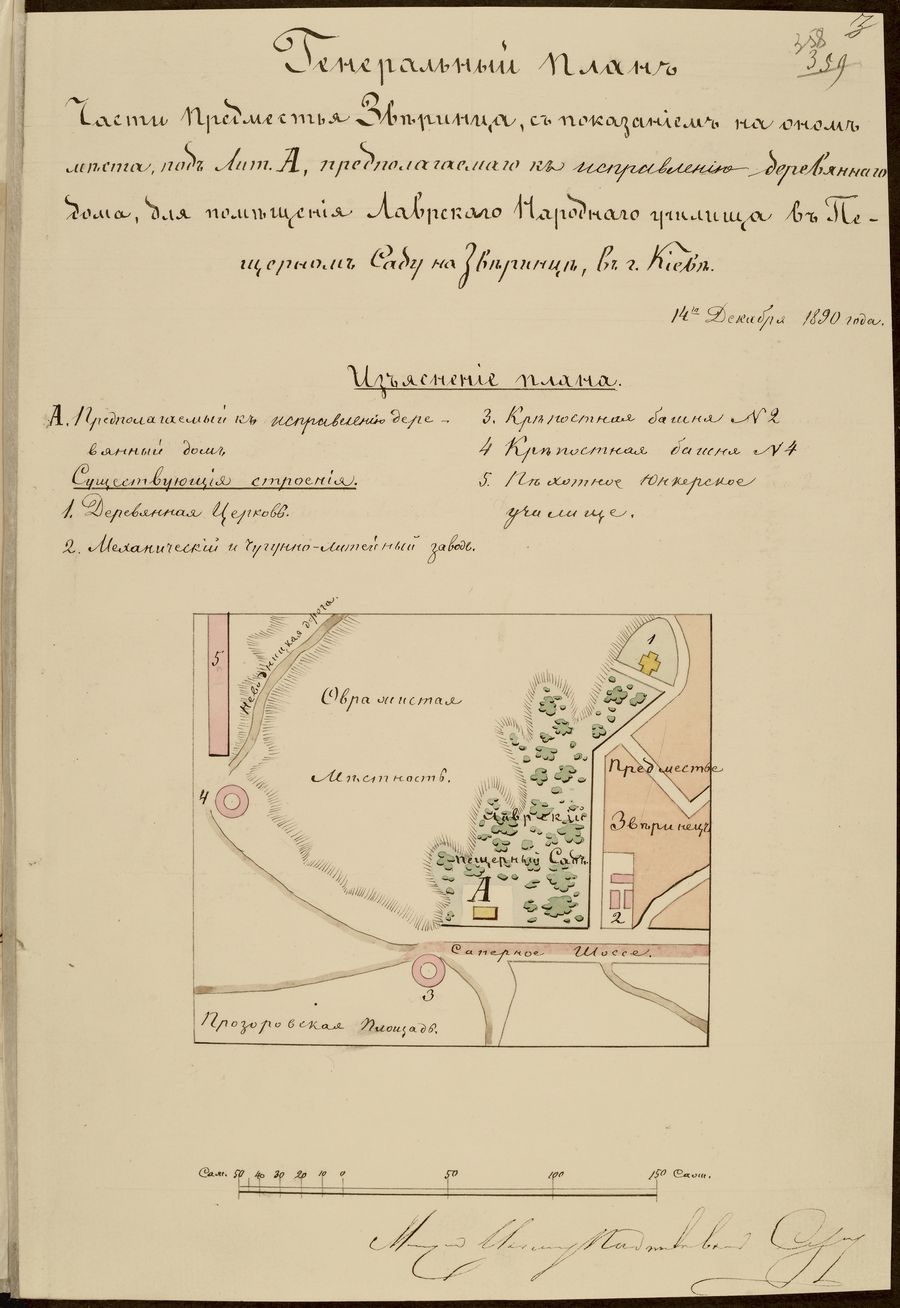 3
358
359
Генеральный планъ
Части предместья Звѣринца, съ показаніемъ на ономъ
мѣста, подъ Лит. А, предполагаемаго къ исправленію деревяннаго
дома, для помѣщенія Лаврскаго Народнаго училища въ Пе-
щерномъ Саду на Звѣринцѣ, въ г. Кіевѣ.
14го Декабря 1890 года.
Изъясненіе плана.
А. Предполагаемый къ исправленію дере-
вянный домъ
Существующія строенія.
1. Деревянная Церковь.
2. Механическій и чугунно-литейный заводъ.
3. Крѣпостная башня N 2
4 Крѣпостная башня N 4
5. Пѣхотное Юнкерское
училище.
5
Неводницкая дорога.
1
Овражистая
Мѣстность.
Предместье
4
Лаврскій
Звѣринецъ
пещерный Садъ
А
2
Саперное Шоссе.
3
Прозоровская Площадь.
Саж. 50 40 30 20 10 0 50 100 150 Саж.